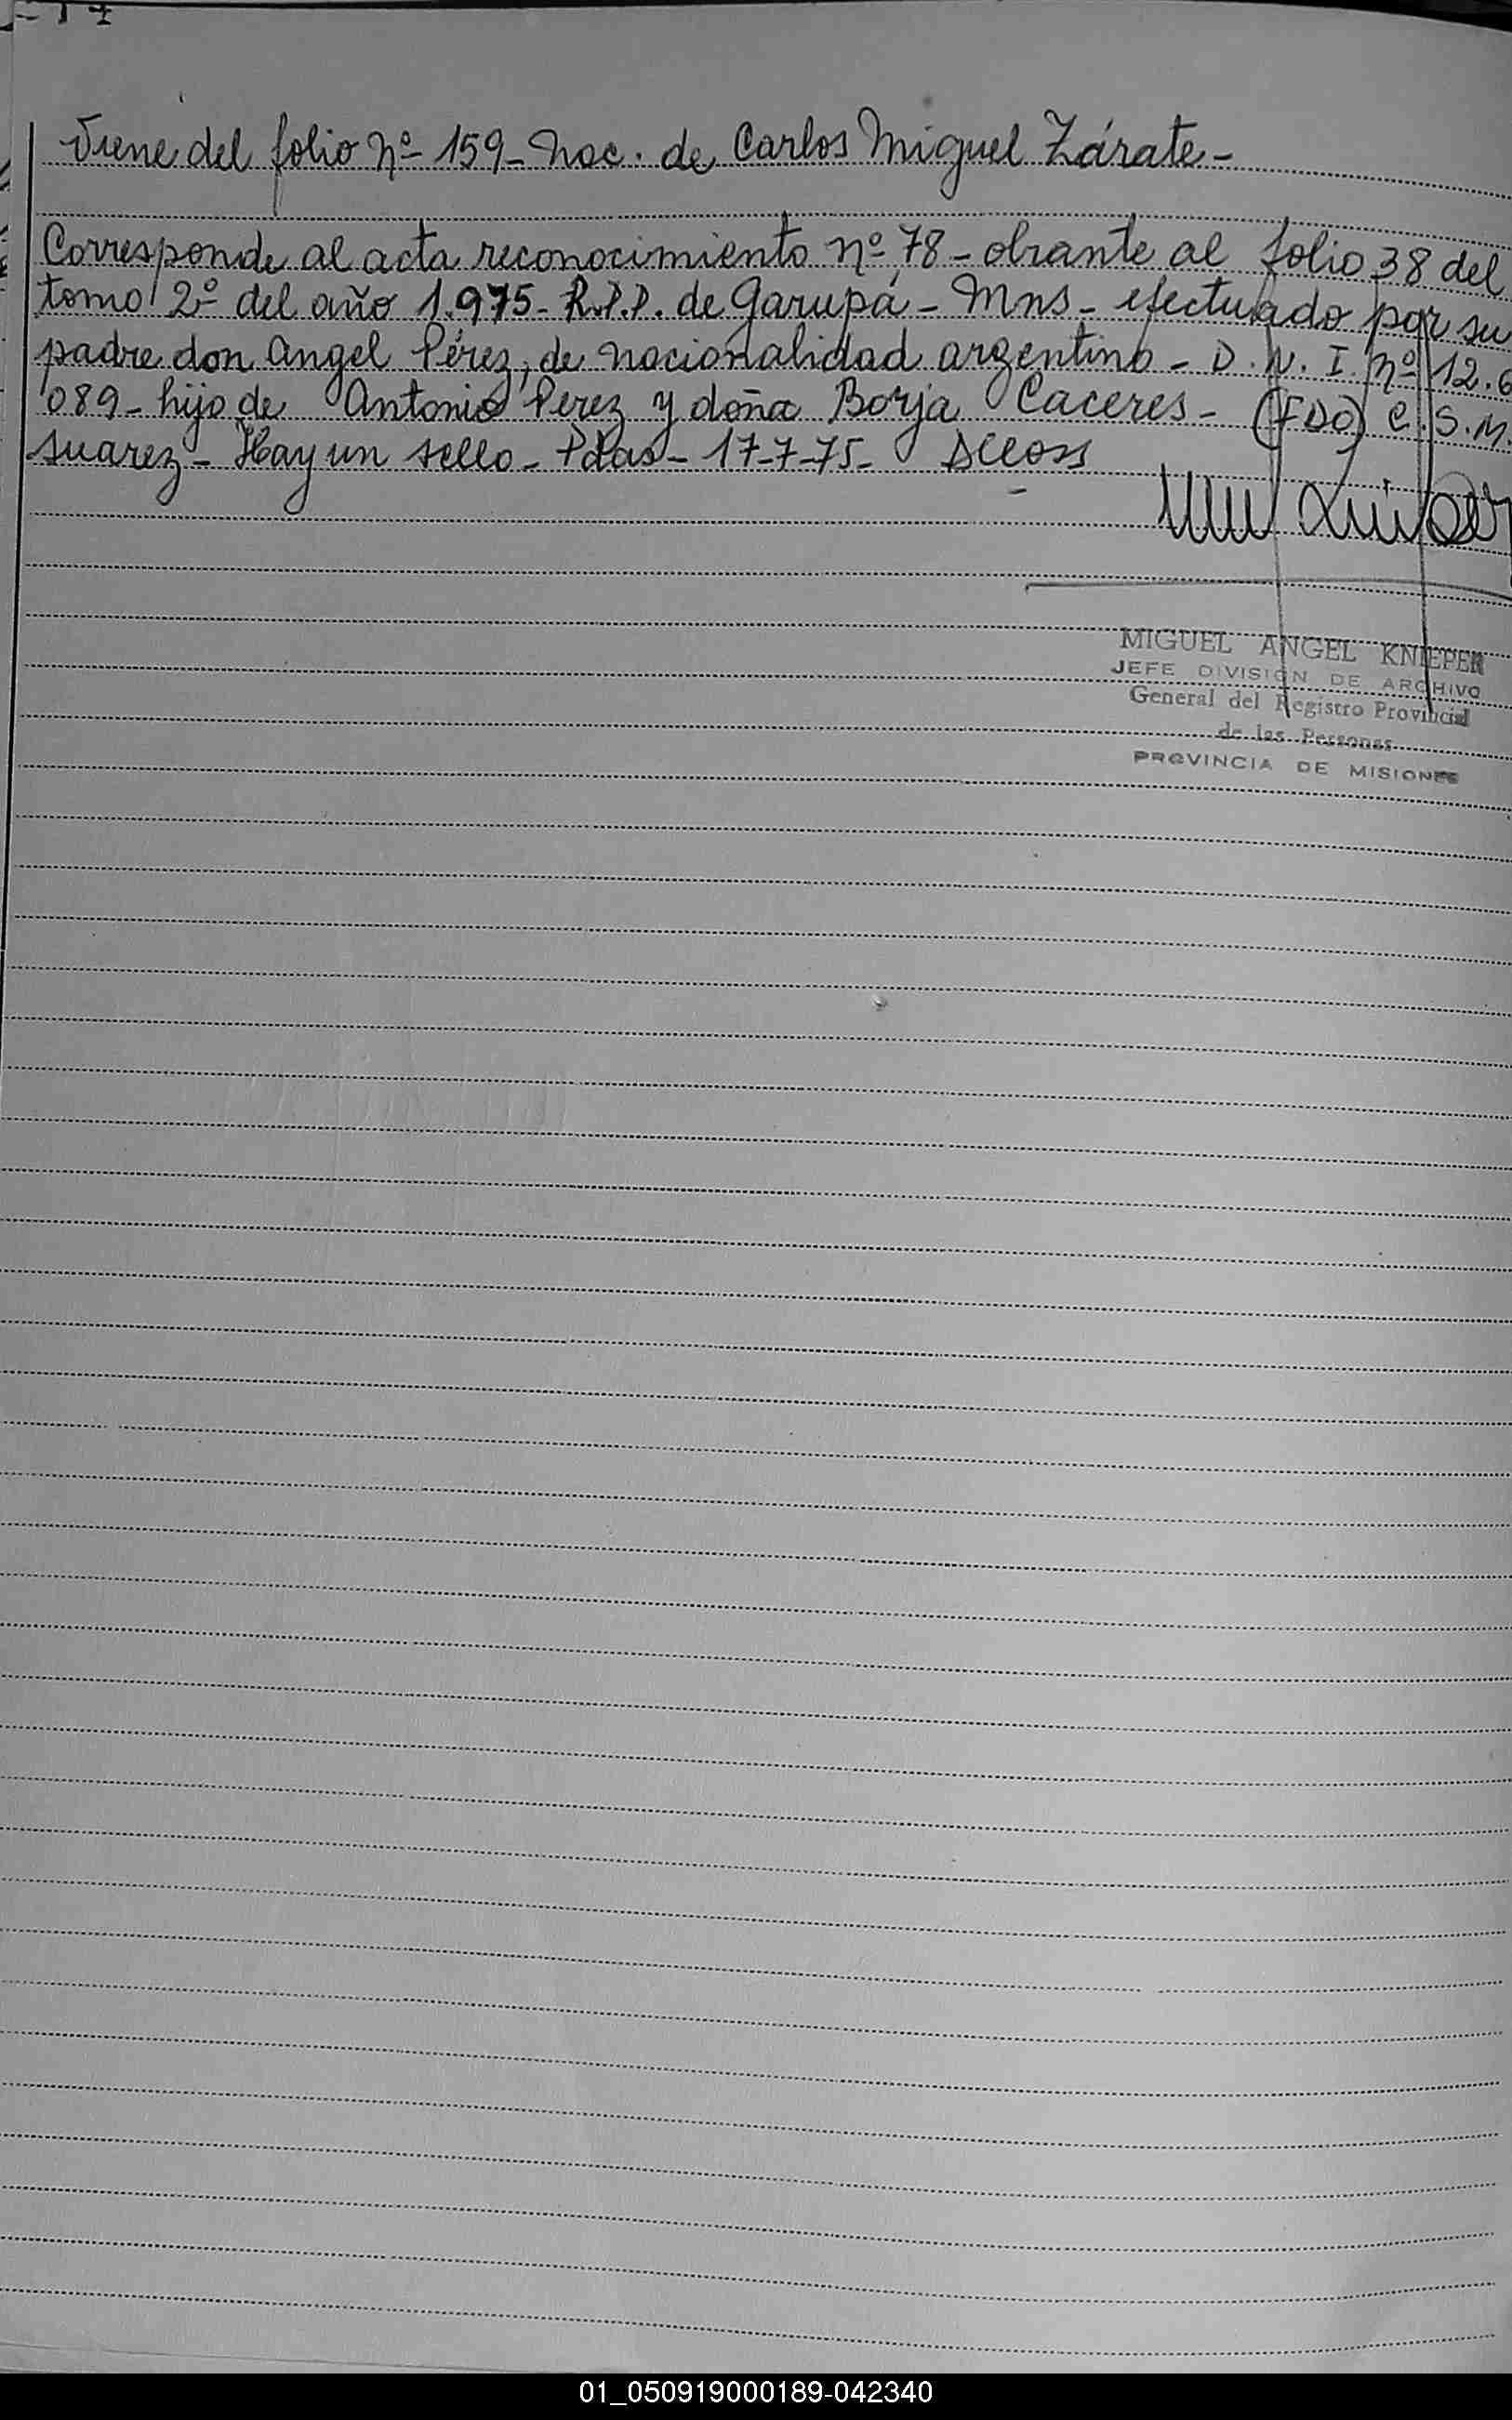 Viene del folio nº 159 - Nac. de Carlos Miguel Zárate -
Corresponde al acta reconocimiento nº 78 - obrante al folio 38 del
tomo 2º del año 1.975 - R.P.P. de Garupá - Mns - efectuado por su
padre don Angel Pérez, de nacionalidad argentino - D.N.I. nº 12.6
089 - hijo de Antonio Perez y doña Borja Caceres - (FDO) C.S.M.
Suarez - Hay un sello - Pdas - 17-7-75 -
MIGUEL ANGEL KNIEPER
JEFE DIVISIÓN DE ARCHIVO
General del Registro Provincial
de las Personas
PROVINCIA DE MISIONES
01_050919000189-042340